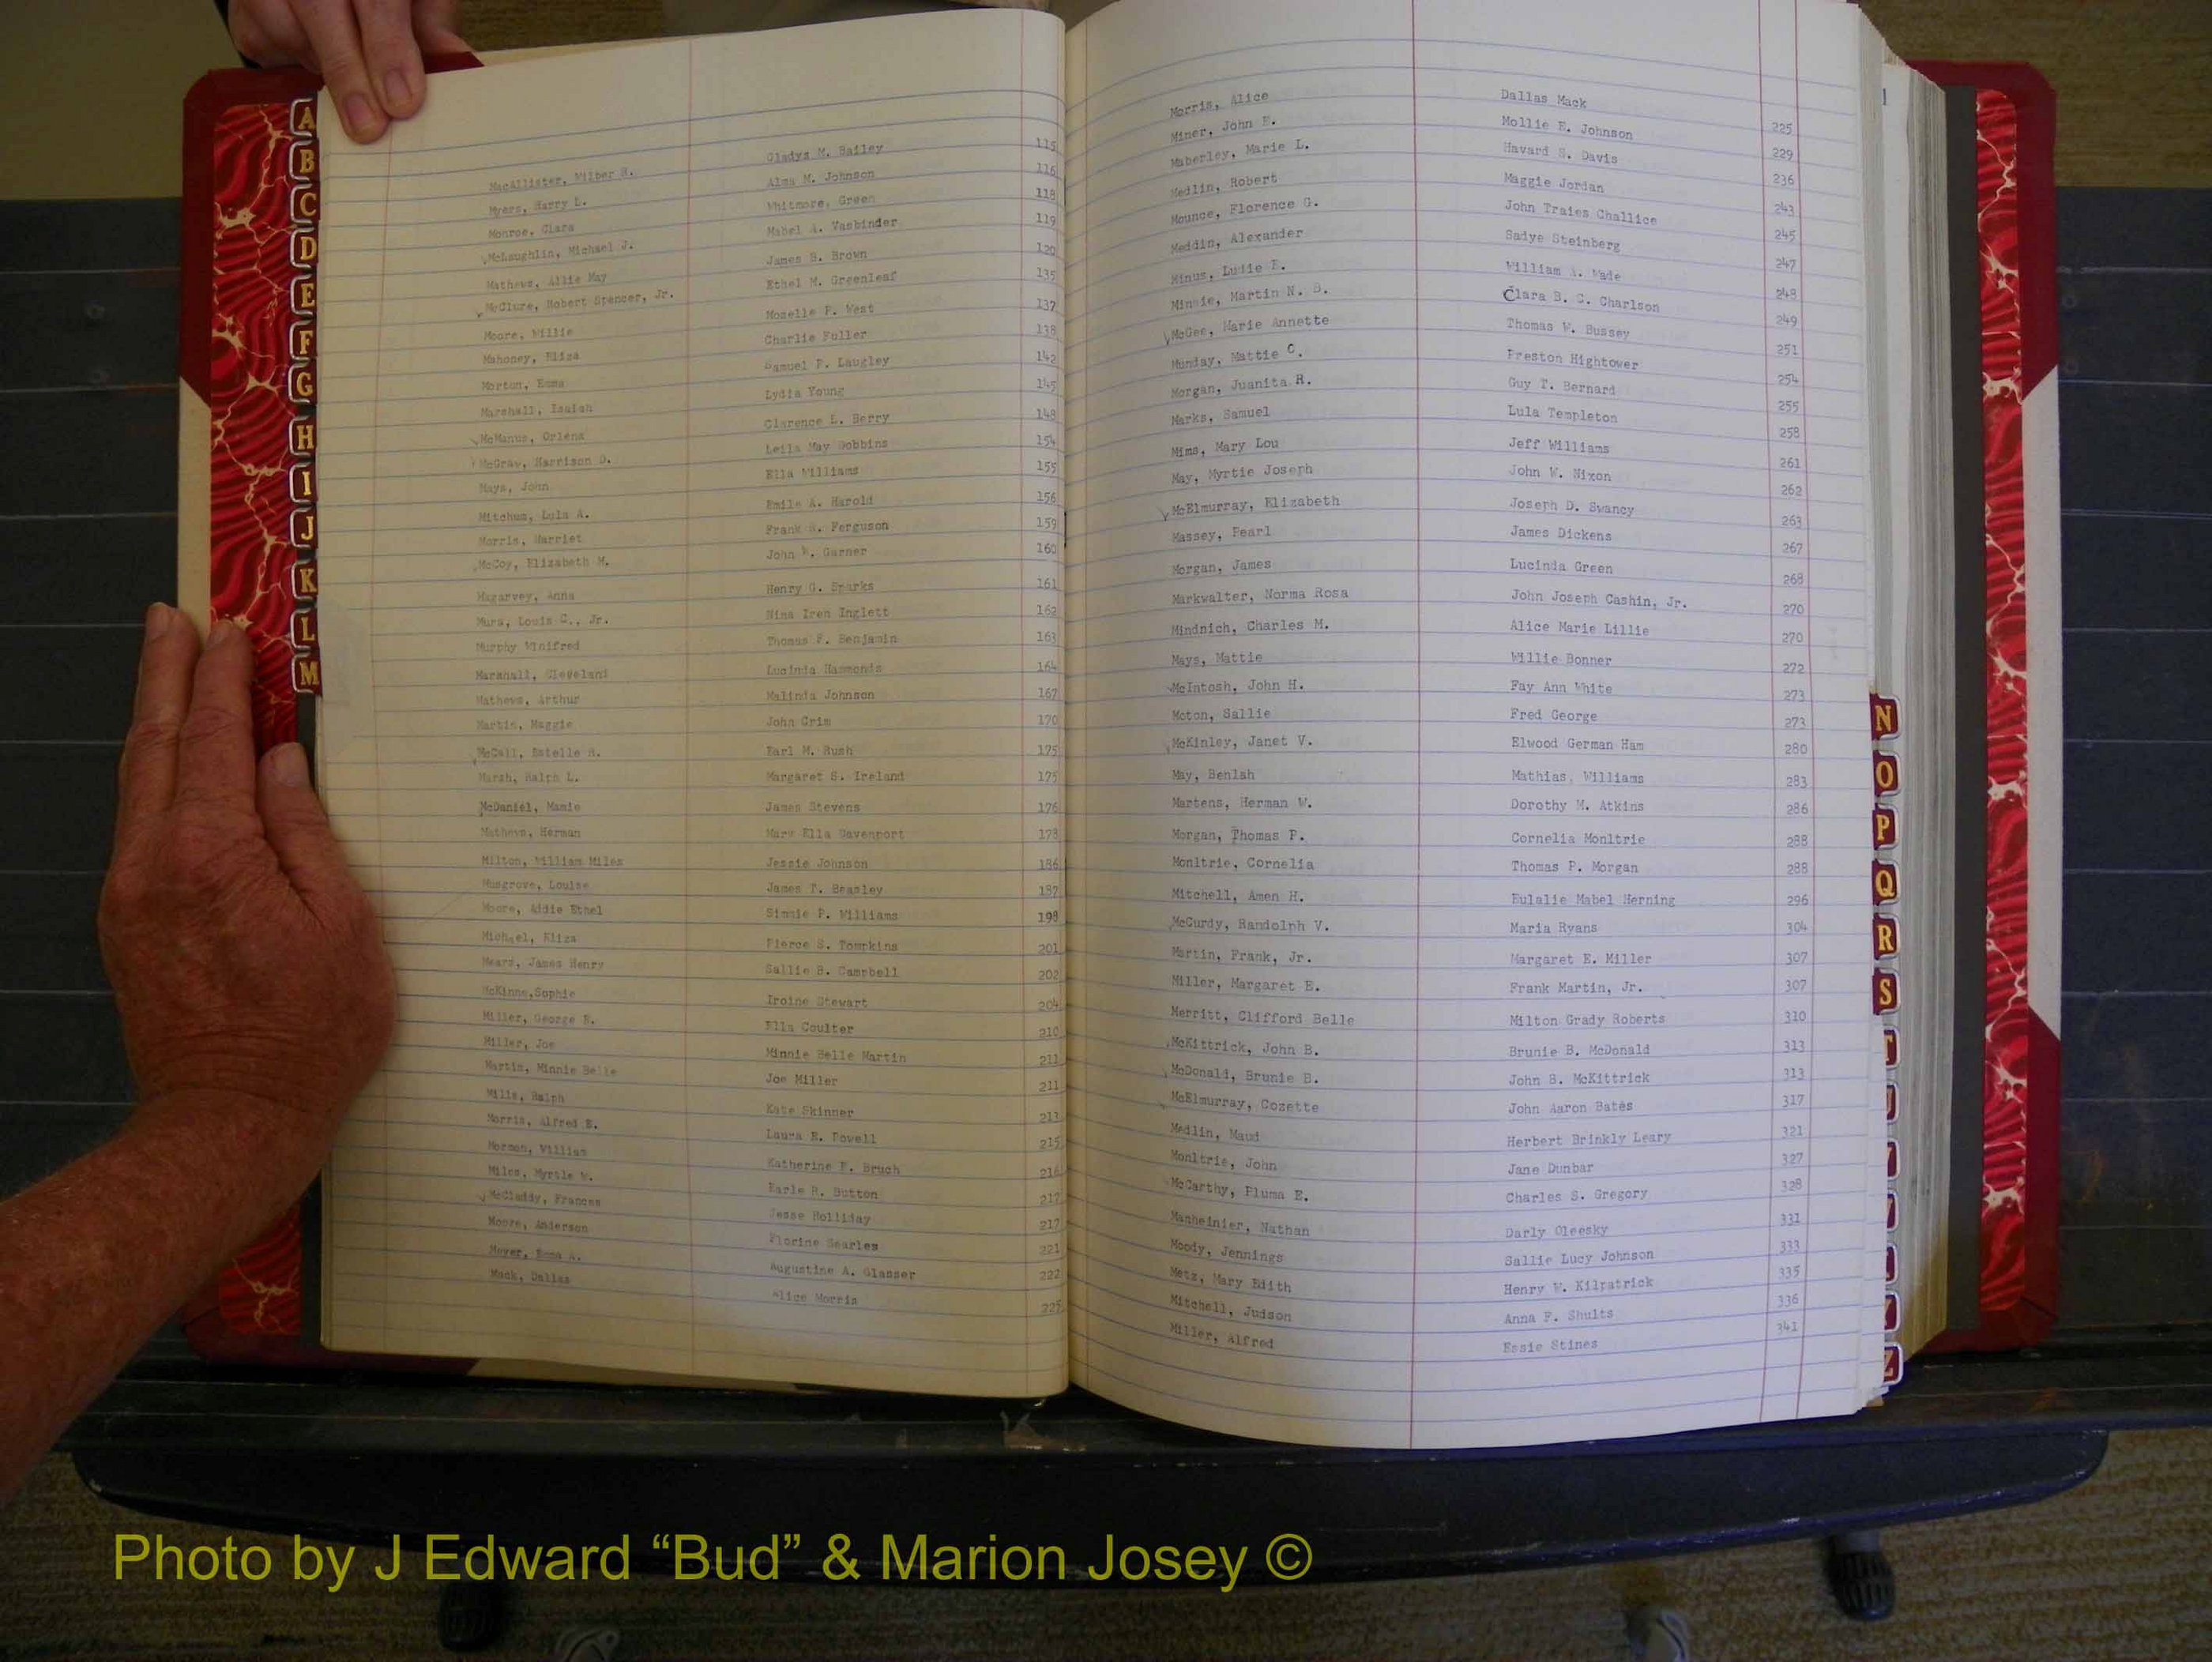 MacAllister, Wilber H. Gladys M. Bailey 115
Myers, Harry L. Alma M. Johnson 116
Monroe, Clara Whitmore, Green 118
McLaughlin, Michael J. Mabel A. Vasbinder 119
Mathews, Allie May James B. Brown 120
McClure, Robert Spencer, Jr. Ethel M. Greenleaf 135
Moore, Willie Mozelle P. West 137
Mahoney, Eliza Charlie Fuller 138
Morton, Emma Samuel P. Laugley 142
Marshall, Isaiah Lydia Young 145
McManus, Orlena Clarence L. Berry 148
McGraw, Harrison D. Leila May Dobbins 154
Mays, John Ella Williams 155
Mitchum, Lula A. Emile A. Harold 156
Morris, Harriet Frank A. Ferguson 159
McCoy, Elizabeth M. John W. Garner 160
Magarvey, Anna Henry G. Sparks 161
Mura, Louis C., Jr. Nina Iren Inglett 162
Murphy Winifred Thomas F. Benjamin 163
Marshall, Cleveland Lucinda Hammonds 164
Mathews, Arthur Malinda Johnson 167
Martin, Maggie John Crim 170
McCall, Estelle R. Earl M. Rush 175
Marsh, Ralph L. Margaret S. Ireland 175
McDaniel, Mamie James Stevens 176
Mathews, Herman Mary Ella Davenport 178
Milton, William Miles Jessie Johnson 186
Musgrove, Louise James T. Beasley 187
Moore, Addie Ethel Simmie P. Williams 198
Michael, Eliza Pierce S. Tompkins 201
Mears, James Henry Sallie B. Campbell 202
McKinne, Sophie Iroine Stewart 204
Miller, George E. Ella Coulter 210
Miller, Joe Minnie Belle Martin 211
Martin, Minnie Belle Joe Miller 211
Mills, Ralph Kate Skinner 213
Morris, Alfred B. Laura E. Powell 215
Morman, William Katherine F. Bruch 216
Miles, Myrtle W. Earle R. Sutton 217
McGladdy, Frances Jesse Holliday 217
Moore, Anderson Florine Searles 221
Meyer, Emma A. Augustine A. Glasser 222
Mack, Dallas Alice Morris 225
Morris, Alice Dallas Mack 225
Miner, John E. Mollie E. Johnson 229
Maberley, Marie L. Havard S. Davis 236
Medlin, Robert Maggie Jordan 243
Mounce, Florence G. John Traies Challice 245
Meddin, Alexander Sadye Steinberg 247
Minus, Ludie E. William A. Wade 248
Minnie, Martin N. B. Clara B. C. Charlson 249
McGee, Marie Annette Thomas W. Bussey 251
Munday, Mattie C. Preston Hightower 254
Morgan, Juanita R. Guy T. Bernard 255
Marks, Samuel Lula Templeton 258
Mims, Mary Lou Jeff Williams 261
May, Myrtie Joseph John W. Nixon 262
McElmurray, Elizabeth Joseph D. Swancy 263
Massey, Pearl James Dickens 267
Morgan, James Lucinda Green 268
Markwalter, Norma Rosa John Joseph Cashin, Jr. 270
Mindnich, Charles M. Alice Marie Lillie 270
Mays, Mattie Willie Bonner 272
McIntosh, John H. Fay Ann White 273
Moton, Sallie Fred George 273
McKinley, Janet V. Elwood German Ham 280
May, Benlah Mathias, Williams 283
Martens, Herman W. Dorothy M. Atkins 286
Morgan, Thomas P. Cornelia Monltrie 288
Monltrie, Cornelia Thomas P. Morgan 288
Mitchell, Amen H. Eulalie Mabel Herning 296
McCurdy, Randolph V. Maria Ryans 304
Martin, Frank, Jr. Margaret E. Miller 307
Miller, Margaret E. Frank Martin, Jr. 307
Merritt, Clifford Belle Milton Grady Roberts 310
McKittrick, John B. Brunie B. McDonald 313
McDonald, Brunie B. John B. McKittrick 313
McElmurray, Cozette John Aaron Bates 317
Medlin, Maud Herbert Brinkly Leary 321
Monltrie, John Jane Dunbar 327
McCarthy, Pluma E. Charles S. Gregory 328
Manheinier, Nathan Darly Oleesky 331
Moody, Jennings Sallie Lucy Johnson 333
Metz, Mary Edith Henry W. Kilpatrick 335
Mitchell, Judson Anna F. Shults 336
Miller, Alfred Essie Stines 341
A
B
C
D
E
F
G
H
I
J
K
L
M
N
O
P
Q
R
S
T
Z
Photo by J Edward “Bud” & Marion Josey ©